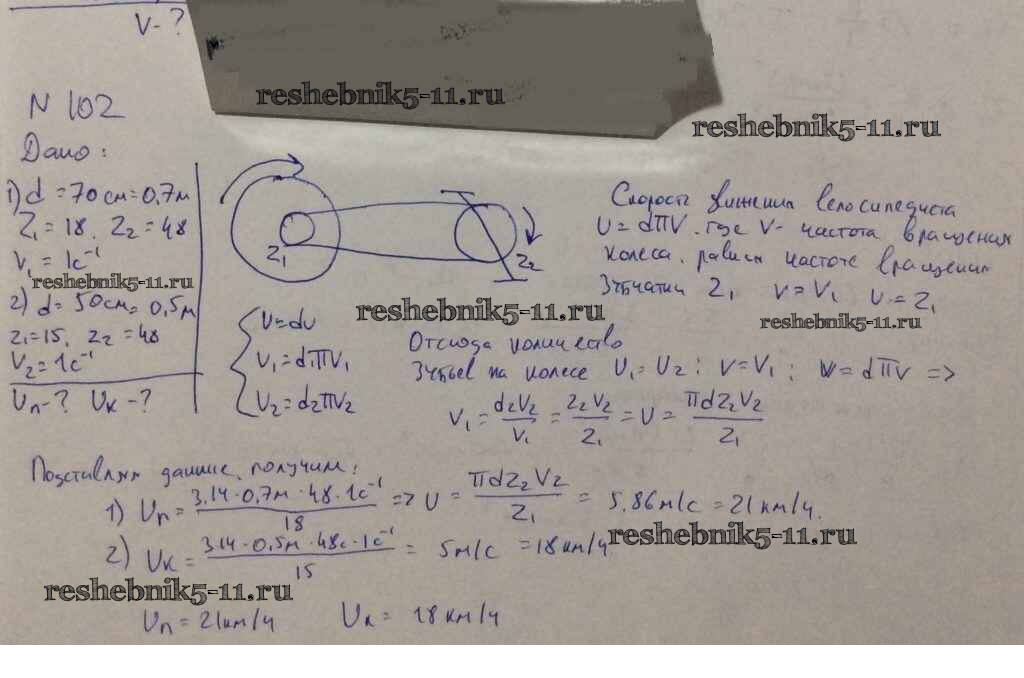 V - ?
N 102
reshebnik5-11.ru
reshebnik5-11.ru
Дано:
1) d = 70 см = 0,7 м
Z₁ = 18. Z₂ = 48
V₁ = 1c⁻¹
reshebnik5-11.ru
2) d = 50 см = 0,5 м
Z₁ = 15, Z₂ = 48
V₂ = 1c⁻¹
Uп - ? Uк - ?
Z₁
Z₂
Скорость движения велосипедиста
U = dπV. где V - частота вращения
колеса. равна частоте вращения
Зубчатки Z₁ V = V₁ U = Z₁
reshebnik5-11.ru
reshebnik5-11.ru
U = dυ
υ₁ = d₁πV₁
υ₂ = d₂πV₂
Отсюда количество
Зубьев на колесе U₁ = U₂ ; V = V₁ ; V = dπV =>
V₁ = d₂V₂/V₁ = Z₂V₂/Z₁ = U = πdZ₂V₂/Z₁
Подставляя данные, получим:
1) Uп = 3,14 · 0,7м · 48 · 1c⁻¹/18 => U = πdZ₂V₂/Z₁ = 5,86 м/с = 21 км/ч.
reshebnik5-11.ru
2) Uк = 3,14 · 0,5м · 48с · 1c⁻¹/15 = 5 м/с = 18 км/ч
reshebnik5-11.ru
Uп = 21 км/ч Uк = 18 км/ч